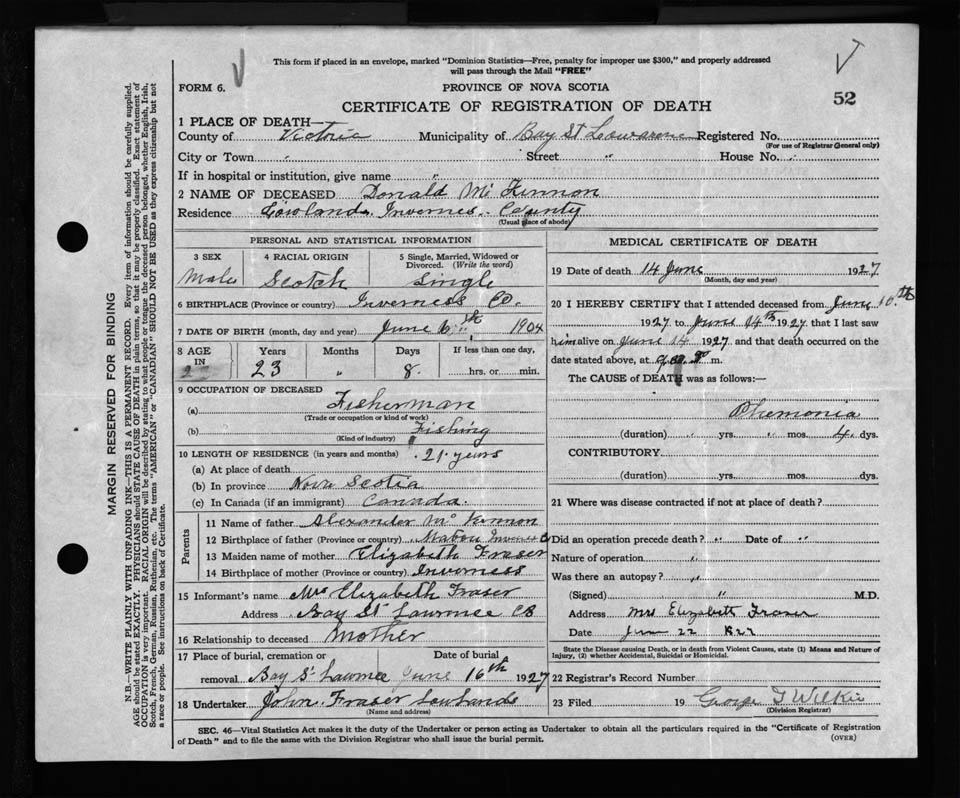 This form if placed in an envelope, marked "Dominion Statistics—Free, penalty for improper use $300," and properly addressed
will pass through the Mail "FREE"
FORM 6.
PROVINCE OF NOVA SCOTIA
CERTIFICATE OF REGISTRATION OF DEATH
52
1 PLACE OF DEATH—
County of Victoria Municipality of Bay St Registered No.
(For use of Registrar General only)
City or Town Street " House No.
If in hospital or institution, give name "
2 NAME OF DECEASED Donald Mc Kinnon
Residence Inverness County
(Usual place of abode)
PERSONAL AND STATISTICAL INFORMATION
3 SEX
Male
4 RACIAL ORIGIN
Scotch
5 Single, Married, Widowed or
Divorced. (Write the word)
Single
6 BIRTHPLACE (Province or country) Inverness Co.
7 DATE OF BIRTH (month, day and year) June 6th 1904
8 AGE
IN
Years
23
Months
"
Days
8
If less than one day,
hrs. or min.
9 OCCUPATION OF DECEASED
(a) Fisherman
(Trade or occupation or kind of work)
(b) Fishing
(Kind of industry)
10 LENGTH OF RESIDENCE (in years and months) 21 years
(a) At place of death
(b) In province Nova Scotia
(c) In Canada (if an immigrant) Canada.
Parents
11 Name of father Alexander Mc Kinnon
12 Birthplace of father (Province or country) Mabou
13 Maiden name of mother Elizabeth Fraser
14 Birthplace of mother (Province or country) Inverness
15 Informant's name Mrs Elizabeth Fraser
Address Bay St Lawrnce CB
16 Relationship to deceased Mother
17 Place of burial, cremation or
removal Bay St Lawrnce
Date of burial
June 16th 1927
18 Undertaker John Fraser
(Name and address)
MEDICAL CERTIFICATE OF DEATH
19 Date of death 14 June 1927
(Month, day and year)
20 I HEREBY CERTIFY that I attended deceased from June 10th
1927 to June 14th 1927 that I last saw
him alive on June 14 1927 and that death occurred on the
date stated above, at m.
The CAUSE of DEATH was as follows:—
Phemonia
(duration) " yrs. " mos. 4 dys.
CONTRIBUTORY
(duration) yrs. mos. dys.
21 Where was disease contracted if not at place of death?
Did an operation precede death? " Date of "
Nature of operation "
Was there an autopsy? "
(Signed) " M.D.
Address Mrs Elizabeth Fraser
Date June 22 1927
State the Disease causing Death, or in death from Violent Causes, state (1) Means and Nature of
Injury, (2) whether Accidental, Suicidal or Homicidal.
22 Registrar's Record Number
23 Filed 19 George T Wilkie
(Division Registrar)
SEC. 46—Vital Statistics Act makes it the duty of the Undertaker or person acting as Undertaker to obtain all the particulars required in the "Certificate of Registration
of Death" and to file the same with the Division Registrar who shall issue the burial permit.
(OVER)
MARGIN RESERVED FOR BINDING
N.B.—WRITE PLAINLY WITH UNFADING INK—THIS IS A PERMANENT RECORD. Every item of information should be carefully supplied.
AGE should be stated EXACTLY. PHYSICIANS should STATE CAUSE OF DEATH in plain terms, so that it may be properly classified. Exact statement of
OCCUPATION is very important. RACIAL ORIGIN will be described by stating to what people or tongue the deceased person belonged, whether English, Irish,
Scotch, French, German, Russian, Ruthenian, etc. The terms "AMERICAN" or "CANADIAN" SHOULD NOT BE USED as they express citizenship but not
a race or people. See instructions on back of Certificate.